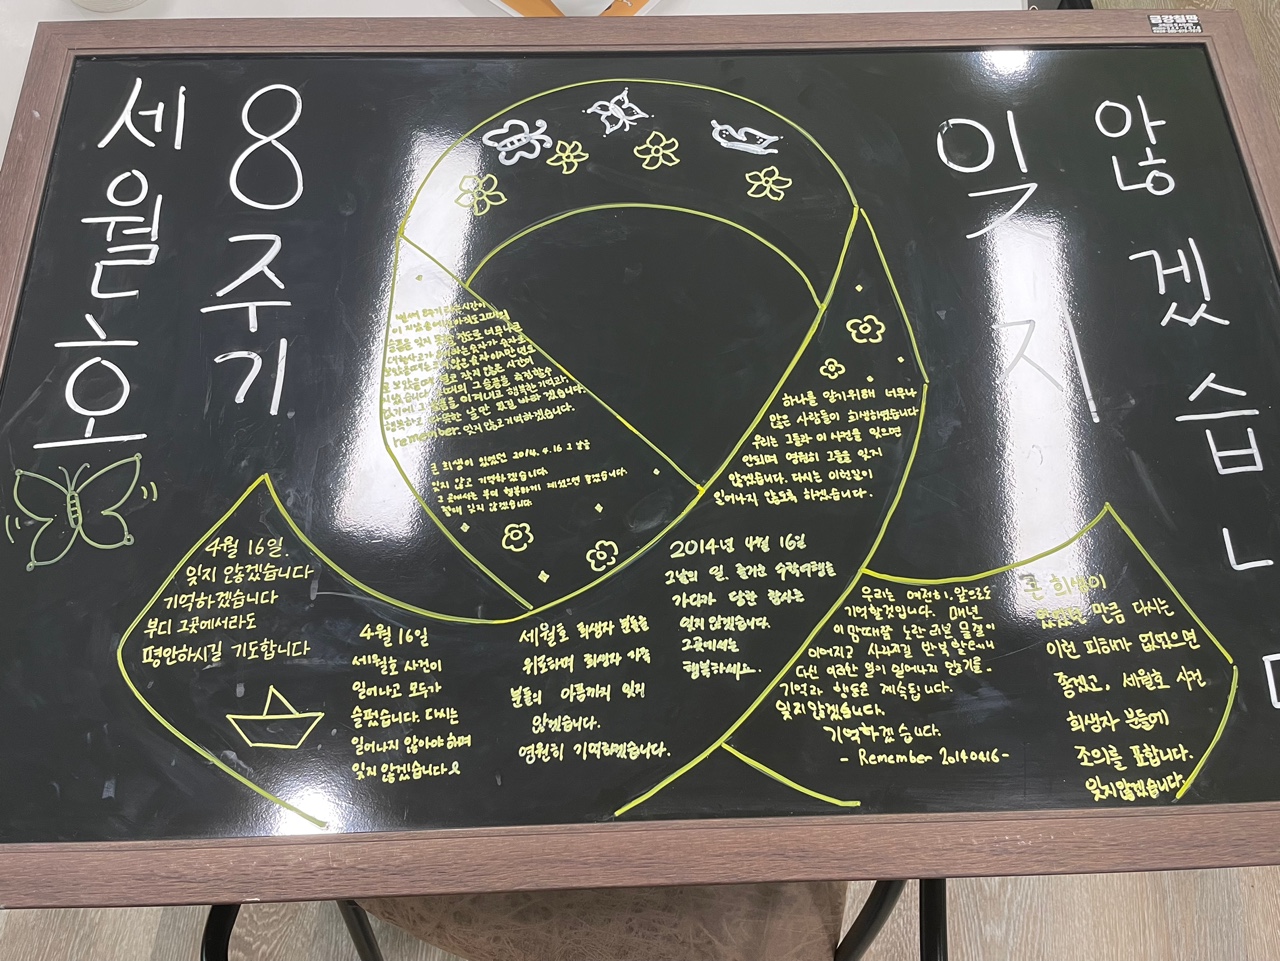 금강칠판
세월호
8주기
잊지
않겠습니
벌써 8주기
remember. 잊지 않고 기억하겠습니다.
큰 희생이 있었던 2014. 4. 16 그 날을
잊지 않고 기억하겠습니다.
그 곳에서는 부디 행복하게 계셨으면 좋겠습니다.
잊지 않겠습니다
하나를 알기위해 너무나
많은 사람들이 희생하였습니다
우리는 그들과 이 사건을 잊으면
안되며 영원히 그들을 잊지
않겠습니다. 다시는 이런일이
일어나지 않도록 하겠습니다.
4월 16일.
잊지 않겠습니다
기억하겠습니다
부디 그곳에서라도
평안하시길 기도합니다
4월 16일
세월호 사건이
일어나고 모두가
슬펐습니다. 다시는
일어나지 않아야 하며
잊지 않겠습니다
세월호 희생자 분들을
위로하며 희생자 가족
분들의 아픔까지 잊지
않겠습니다.
영원히 기억하겠습니다.
2014년 4월 16일
그날의 일. 즐거운 수학여행을
가다가 당한 참사는
잊지 않겠습니다.
그곳에서는
행복하세요.
우리는 여전히, 앞으로도
기억할것입니다. 매년
이맘때쯤 노란 리본 물결이
이어지고 사라지길 반복할테니
다신 이러한 일이 일어나지 않기를.
기억과 행동은 계속됩니다.
잊지않겠습니다.
기억하겠습니다.
- Remember 20140416 -
큰 희생이
있었던 만큼 다시는
이런 피해가 없었으면
좋겠고, 세월호 사건
희생자 분들에
조의를 표합니다.
잊지않겠습니다.